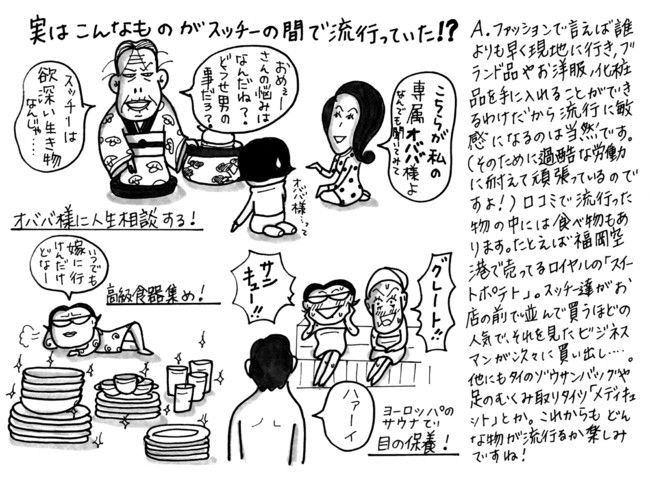 実はこんなものがスッチーの間で流行っていた!?
おめぇー
さんの悩みは
なんだね?
どうせ男の
事だろ?
スッチーは
欲深い生き物
なんじゃ…
こちらが私の
専属オババ様よ
なんでも聞いてみて
オババ様…って
オババ様に人生相談する!
いつでも
嫁に行
けんだけ
どなー
高級食器集め!
サン
キュー!!
グレート!!
ハァーイ
ヨーロッパの
サウナで
目の保養!
A.ファッションで言えば誰
よりも早く現地に行き、ブ
ランド品やお洋服、化粧
品を手に入れることができ
るわけだから流行に敏
感になるのは当然です。
(そのために過酷な労働
に耐えて頑張っているので
すよ!)口コミで流行った
物の中には食べ物もあ
ります。たとえば福岡空
港で売ってるロイヤルの「スイー
トポテト」。スッチー達がお
店の前で並んで買うほどの
人気で、それを見たビジネス
マンが次々に買い出し…。
他にもタイのゾウサンバッグや
足のむくみ取りタイツ「メディキュ
ット」とか。これからもどん
な物が流行るか楽しみ
ですね!